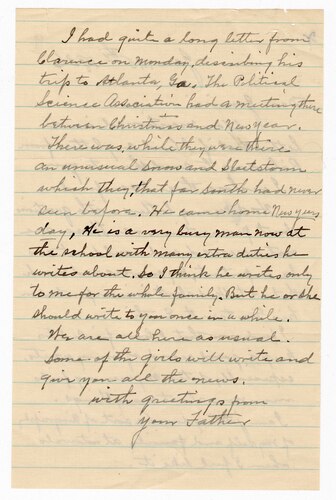 I had quite a long letter from
Clarence on Monday, describing his
trip to Atlanta, Ga. The Political
Science Association had a meeting there
between Christmas and New year.
There was, while they were there
an unusual snow and Sleetstorm
which they, that far South had never
seen before. He came home New years
day, He is a very busy man now at
the school with many extra duties he
writes about. So I think he writes only
to me for the whole family. But he or she
should write to you once in a while.
We are all here as usual.
Some of the girls will write and
give you all the news.
with greetings from
your Father